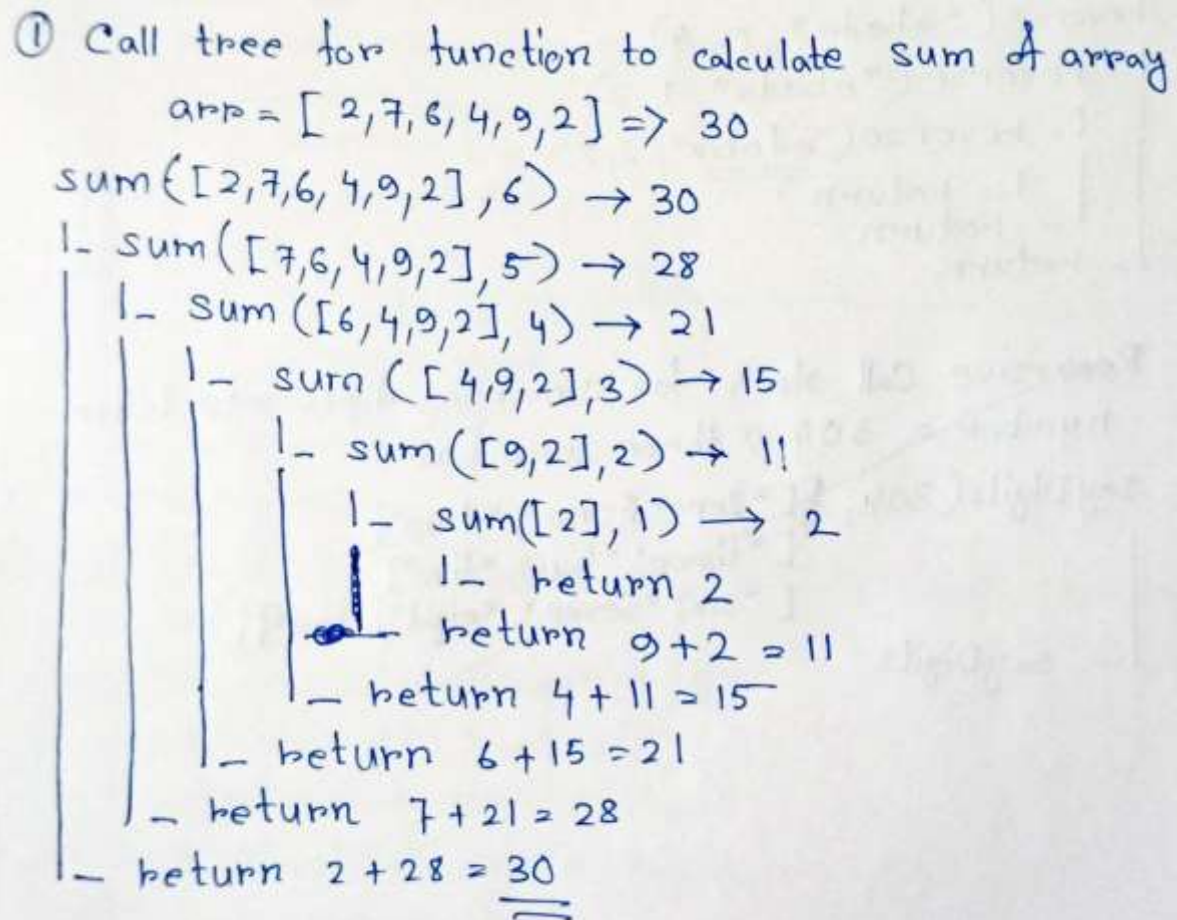 ① Call tree for function to calculate sum of array
arr = [2,7,6,4,9,2] => 30
sum([2,7,6,4,9,2],6) → 30
|- sum([7,6,4,9,2],5) → 28
|- sum([6,4,9,2],4) → 21
|- sum([4,9,2],3) → 15
|- sum([9,2],2) → 11
|- sum([2],1) → 2
|- return 2
- return 9+2 = 11
|- return 4+11 = 15
|- return 6+15 = 21
|- return 7+21 = 28
|- return 2+28 = 30